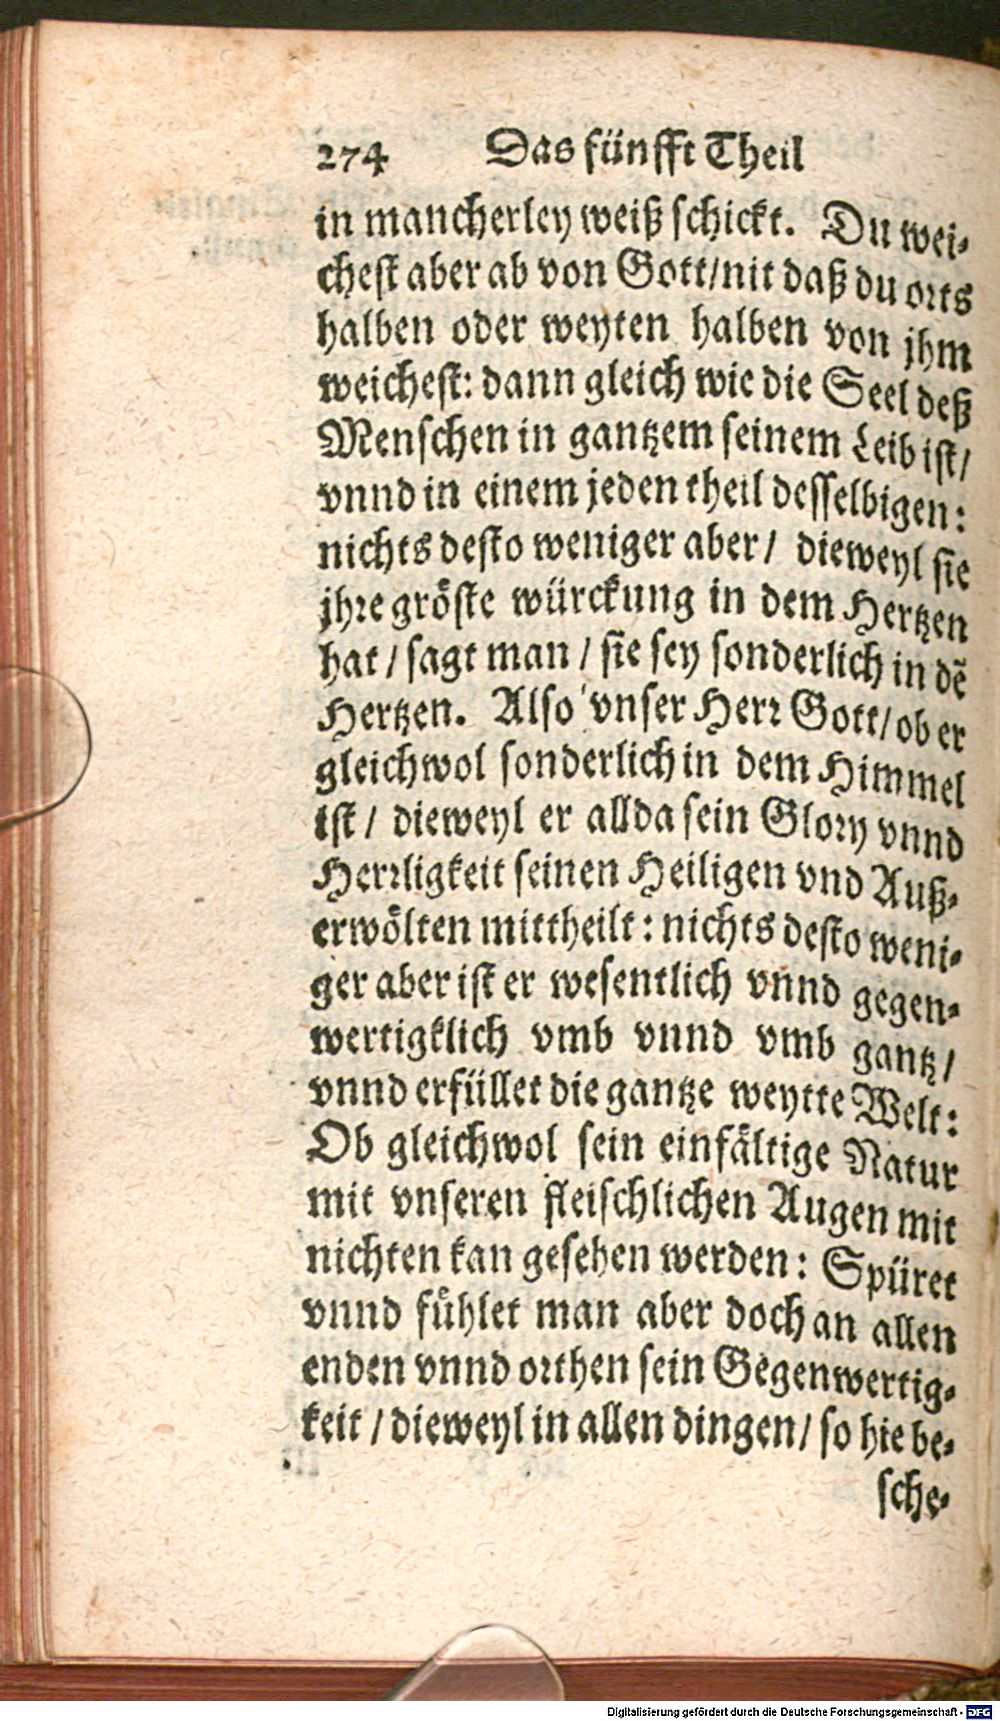 274 Das fünfft Theil
in mancherley weiß schickt. Du wei-
chest aber ab von Gott/nit daß du orts
halben oder weyten halben von jhm
weichest: dann gleich wie die Seel deß
Menschen in gantzem seinem Leib ist/
vnnd in einem jeden theil desselbigen:
nichts desto weniger aber/ dieweyl sie
jhre gröste würckung in dem Hertzen
hat/ sagt man/ sie sey sonderlich in dẽ
Hertzen. Also vnser Herr Gott/ob er
gleichwol sonderlich in dem Himmel
ist/ dieweyl er allda sein Glory vnnd
Herrligkeit seinen Heiligen vnd Auß-
erwölten mittheilt: nichts desto weni-
ger aber ist er wesentlich vnnd gegen-
wertigklich vmb vnnd vmb gantz/
vnnd erfüllet die gantze weytte Welt:
Ob gleichwol sein einfältige Natur
mit vnseren fleischlichen Augen mit
nichten kan gesehen werden: Spüret
vnnd fühlet man aber doch an allen
enden vnnd orthen sein Gegenwertig-
keit/ dieweyl in allen dingen/ so hie be-
sche-
Digitalisierung gefördert durch die Deutsche Forschungsgemeinschaft - DFG